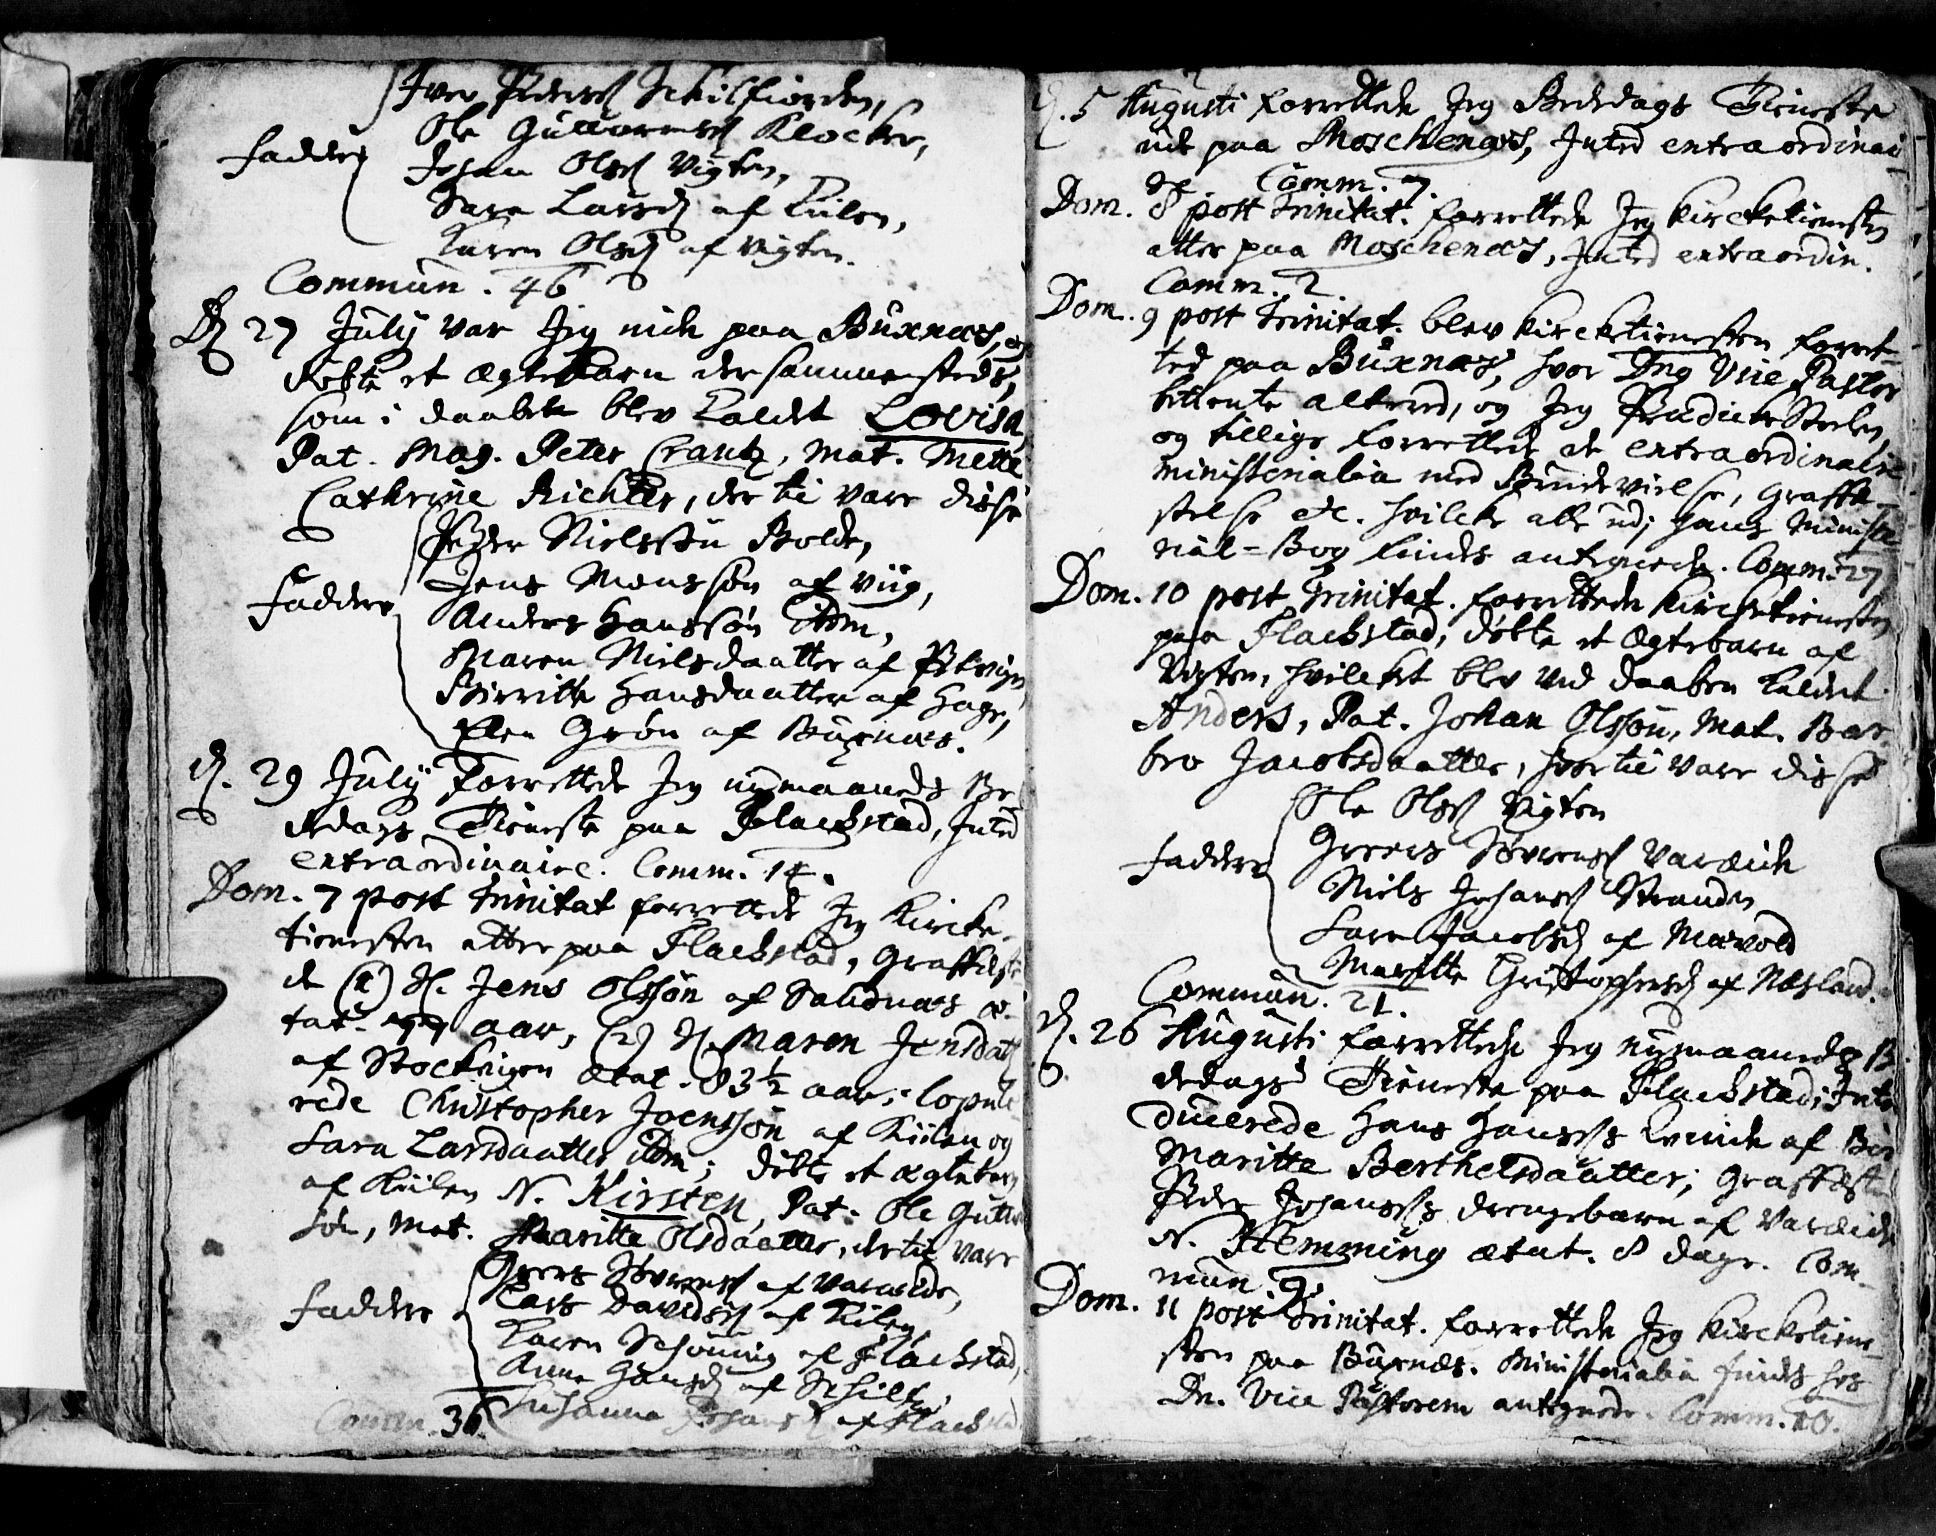 Iver Pedersß Schilfiorden,
Ole Gulliormsß Klocker,
Faddere
Johan Olsß Vigten,
Sara Larsd af Kiilen,
Karen Olsd af Vigten.
Commun. 46
D. 27 July var Jeg ude paa Buxnæs, og
døbte et Ægtebarn der sammesteds,
som i daaben blev kaldet Lovisa
Pat. Mag. Peter Crantz, Mat. Mette
Cathrine Richter, der til vare disse
Peder Nielssøn Bolde,
Jens Monssøn af Viig,
Faddere
Anders Hanssøn ibm,
Maren Nielsdaatter af Petvigen
Birritte Hansdaatter af Hage,
Elen Grøn af Buxnæs.
D. 29 July forrettede Jeg nymaaneds Be-
dedags Tieneste paa Flachstad, Inted
extraordinaire. Comm. 14.
Dom. 7 post Trinitat forrettede Jeg Kircke-
tienesten atter paa Flachstad, Graffæste-
de (1) Sl. Jens Olssøn af Sandnæs æ-
tat. aar, (2) Sl. Maren Jensdatt
af Stockvigen ætat. 83½ aar; Copule-
rede Christopher Joenssøn af Kiilen og
Sara Larsdaatter ibm; døbte et ægtebarn
af Kiilen N. Kirsten, Pat. Ole Guttor
søn, Mat. Maritte Olsdaatter, der til vare
Greers Sørensß af Vareide,
Faddere
Lars Davidsß af Kiilen,
Karen Schøning af Flachstad,
Anne Hansd af Schielf
Susanna Johansd af Flachstad
Comm. 36.
D. 5 Augusti forrettede Jeg Bededags Tieneste
ude paa Moschenæs, Inted extraordinai-
re Comm. 7.
Dom. 8 post Trinitat. forrettede Jeg Kircketienesten
atter paa Moschenæs, Inted extraordin.
Comm. 2.
Dom. 9 post Trinitat. blev Kircketienesten forret-
ted paa Buxnæs, hvor Dng Vice Pastor
betiente alteret, og Jeg Prædickestolen,
og tillige forrettede de extraordinaire
ministerialia med Brudevielse, Graffæ-
stelse etc. hvilcke alle udi hans Ministe-
rial-Bog findes antegnede. Comm. 27
Dom. 10 post Trinitat. forrettede Kircketienesten
paa Flachstad, døbte et Ægtebarn af
Vigten, hvilcket blev ved daaben kaldet
Anders, Pat. Johan Olssøn, Mat. Bar-
bro Jacobsdaatter, hvortil vare disse
Ole Olsß Vigten
Greers Sørensß Vareide
Faddere
Niels Johansß Stranden
Sara Jacobsd af Mærvold
Maritte Christophersd af Næsland.
Commun. 21.
D. 26 Augusti forrettede Jeg nymaaneds B
dedags Tieneste paa Flachstad; Intro
ducerede Hans Hansßs Qvinde af Bøe
Maritte Berthelsdaatter; Graffæste
Peder Johansßs drengebarn af Vareide
N. Hemming ætat. 8 dage. Com-
mun. 9.
Dom. 11 post Trinitat. forrettede Jeg Kircketiene-
sten paa Buxnæs. Ministerialia findes hos
Dn. Vice Pastorem antegnede. Comm. 10.